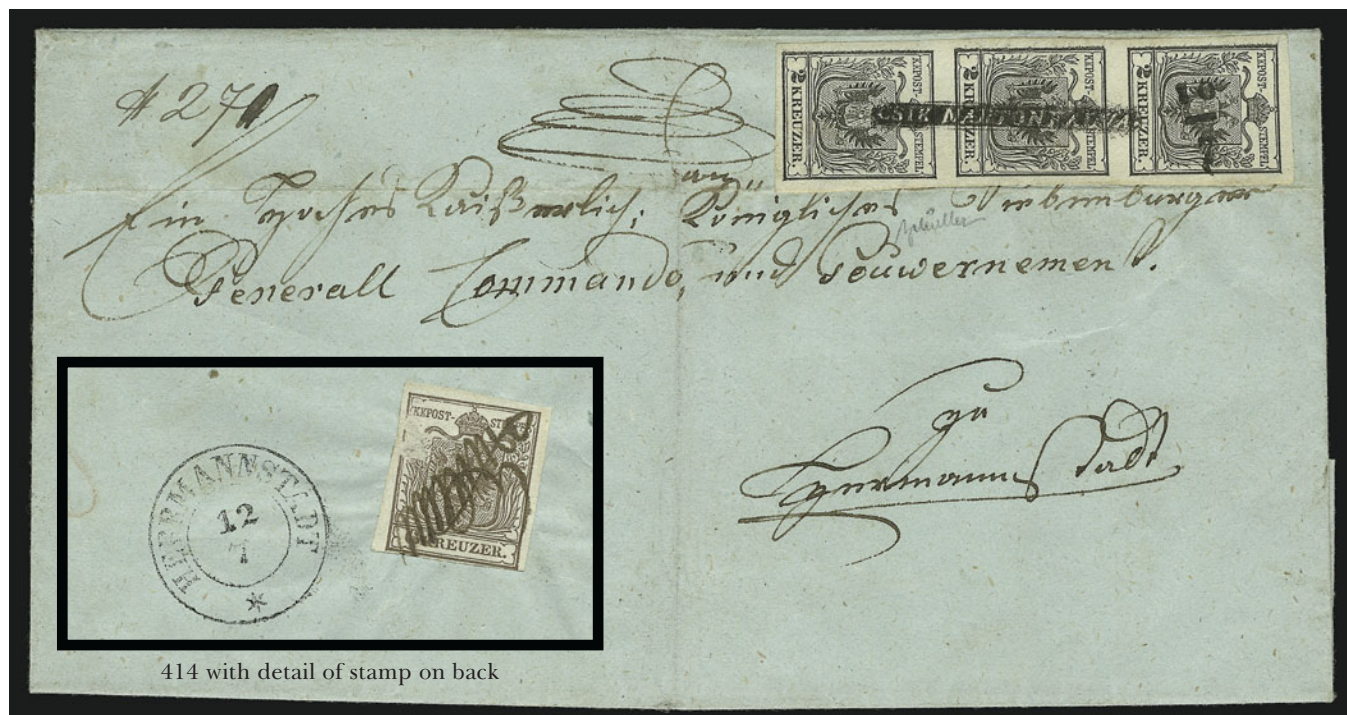 # 271
KKPOST-STEMPEL
2 KREUZER.
KKPOST-STEMPEL
2 KREUZER.
KKPOST-STEMPEL
2 KREUZER.
CSIK
10
7
an
Ein Hohes Kaißerlich; Königliches Siebenburger
Generall Commando, und Gouwernement.
zu
Hermannstadt
HERRMANNSTADT
12
7
KKPOST-
KREUZER.
414 with detail of stamp on back